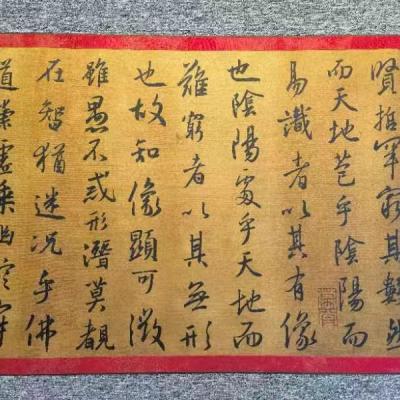 賢哲罕窮其數然
而天地苞乎陰陽而
易識者以其有像
也陰陽處乎天地而
難窮者以其無形
也故知像顯可徵
雖愚不惑形潛莫覩
在智猶迷況乎佛
道崇虛乘幽控寂